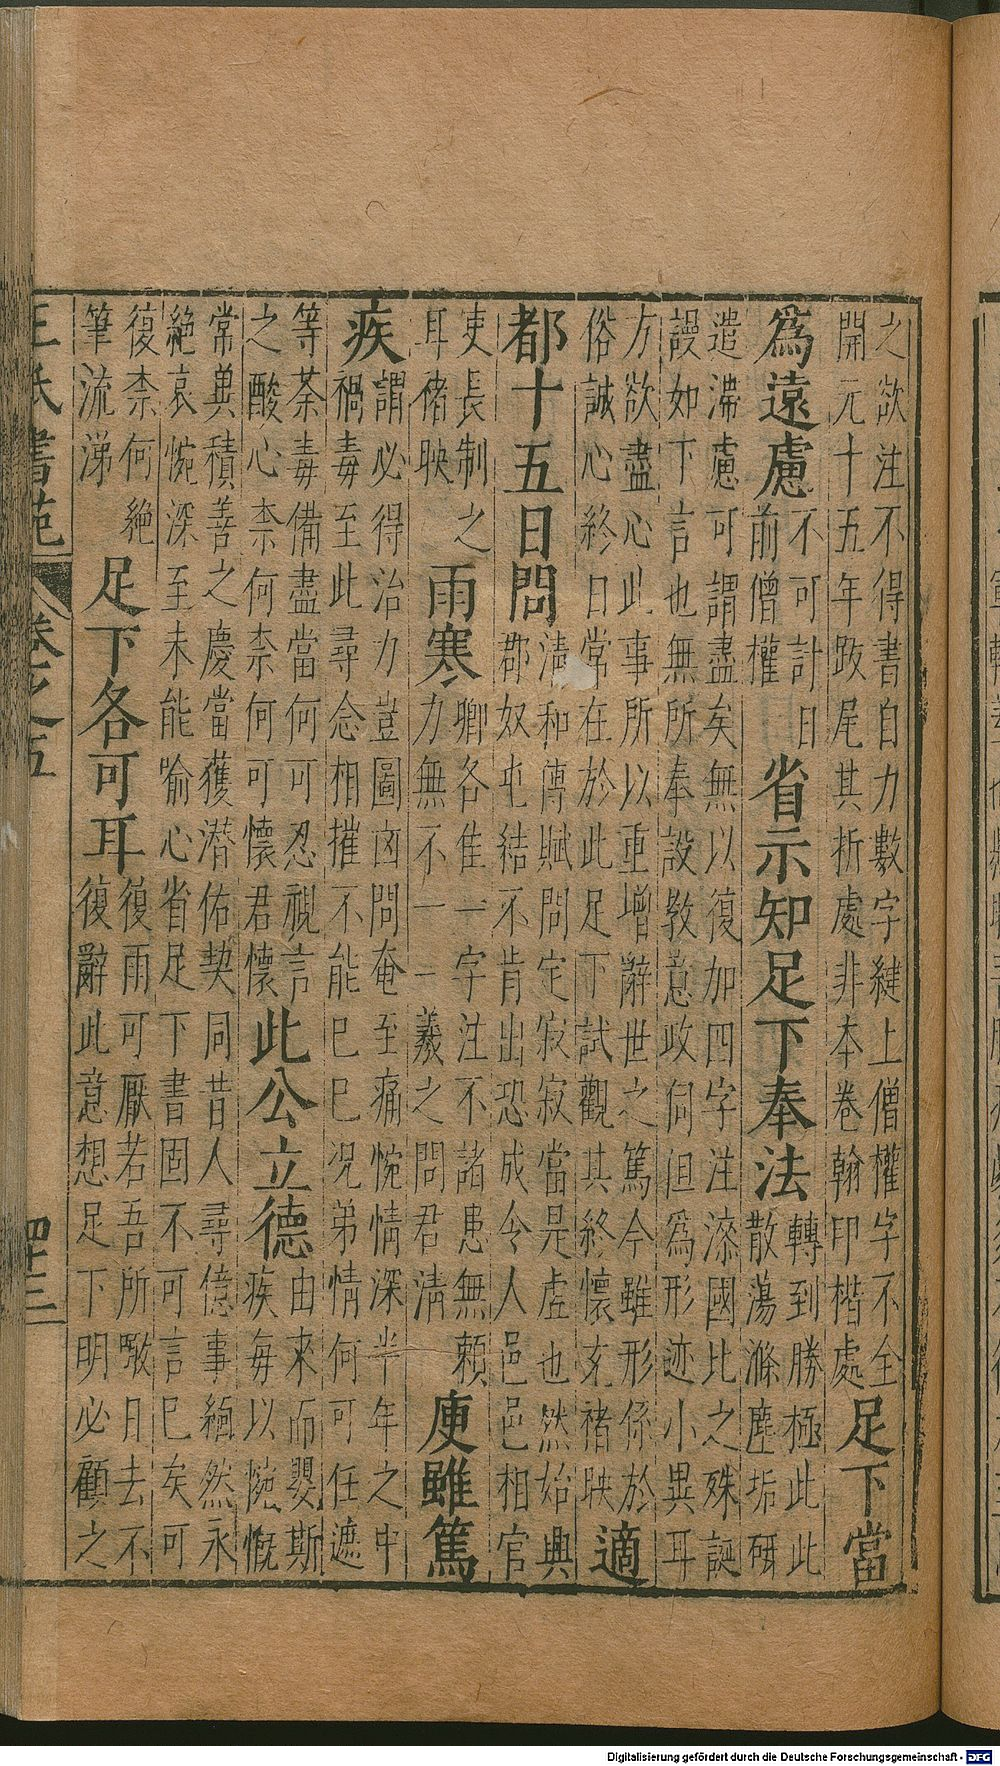 之欲注不得書自力數字縫上僧權字不全
開元十五年跋尾其折處非本卷翰印楷處
足下當
爲遠慮
不可計日
前僧權
省示知足下奉法
轉到勝極此此
散蕩滌塵垢研
遣滯慮可謂盡矣無以復加四字注漆園比之殊誕
謾如下言也無所奉設教意政同但爲形迹小異耳
方欲盡心此事所以重增辭世之篤今雖形係於
俗誠心終日常在於此足下試觀其終懷充褚映
適
都十五日問
清和傳賦問定寂寂當是虛也然始興
郡奴屯結不肯出恐成令人邑邑相官
吏長制之
耳褚映
雨寒
卿各佳一字注不諸患無賴
力無不一一羲之問君清
庾雖篤
疾
謂必得治力豈圖凶問奄至痛惋情深半年之中
禍毒至此尋念相摧不能已已况弟情何可任遮
等荼毒備盡當何可忍視言
之酸心柰何柰何可懷君懷
此公立德
由來而嬰斯
疾每以惋慨
常冀積善之慶當獲潜佑契同昔人尋億事緬然永
絕哀惋深至未能喻心省足下書固不可言已矣可
復柰何絕
筆流涕
足下各可耳
復雨可厭若吾所歎日去不
復辭此意想足下明必顧之
王氏書苑
卷之五
四十三
Digitalisierung gefördert durch die Deutsche Forschungsgemeinschaft - DFG